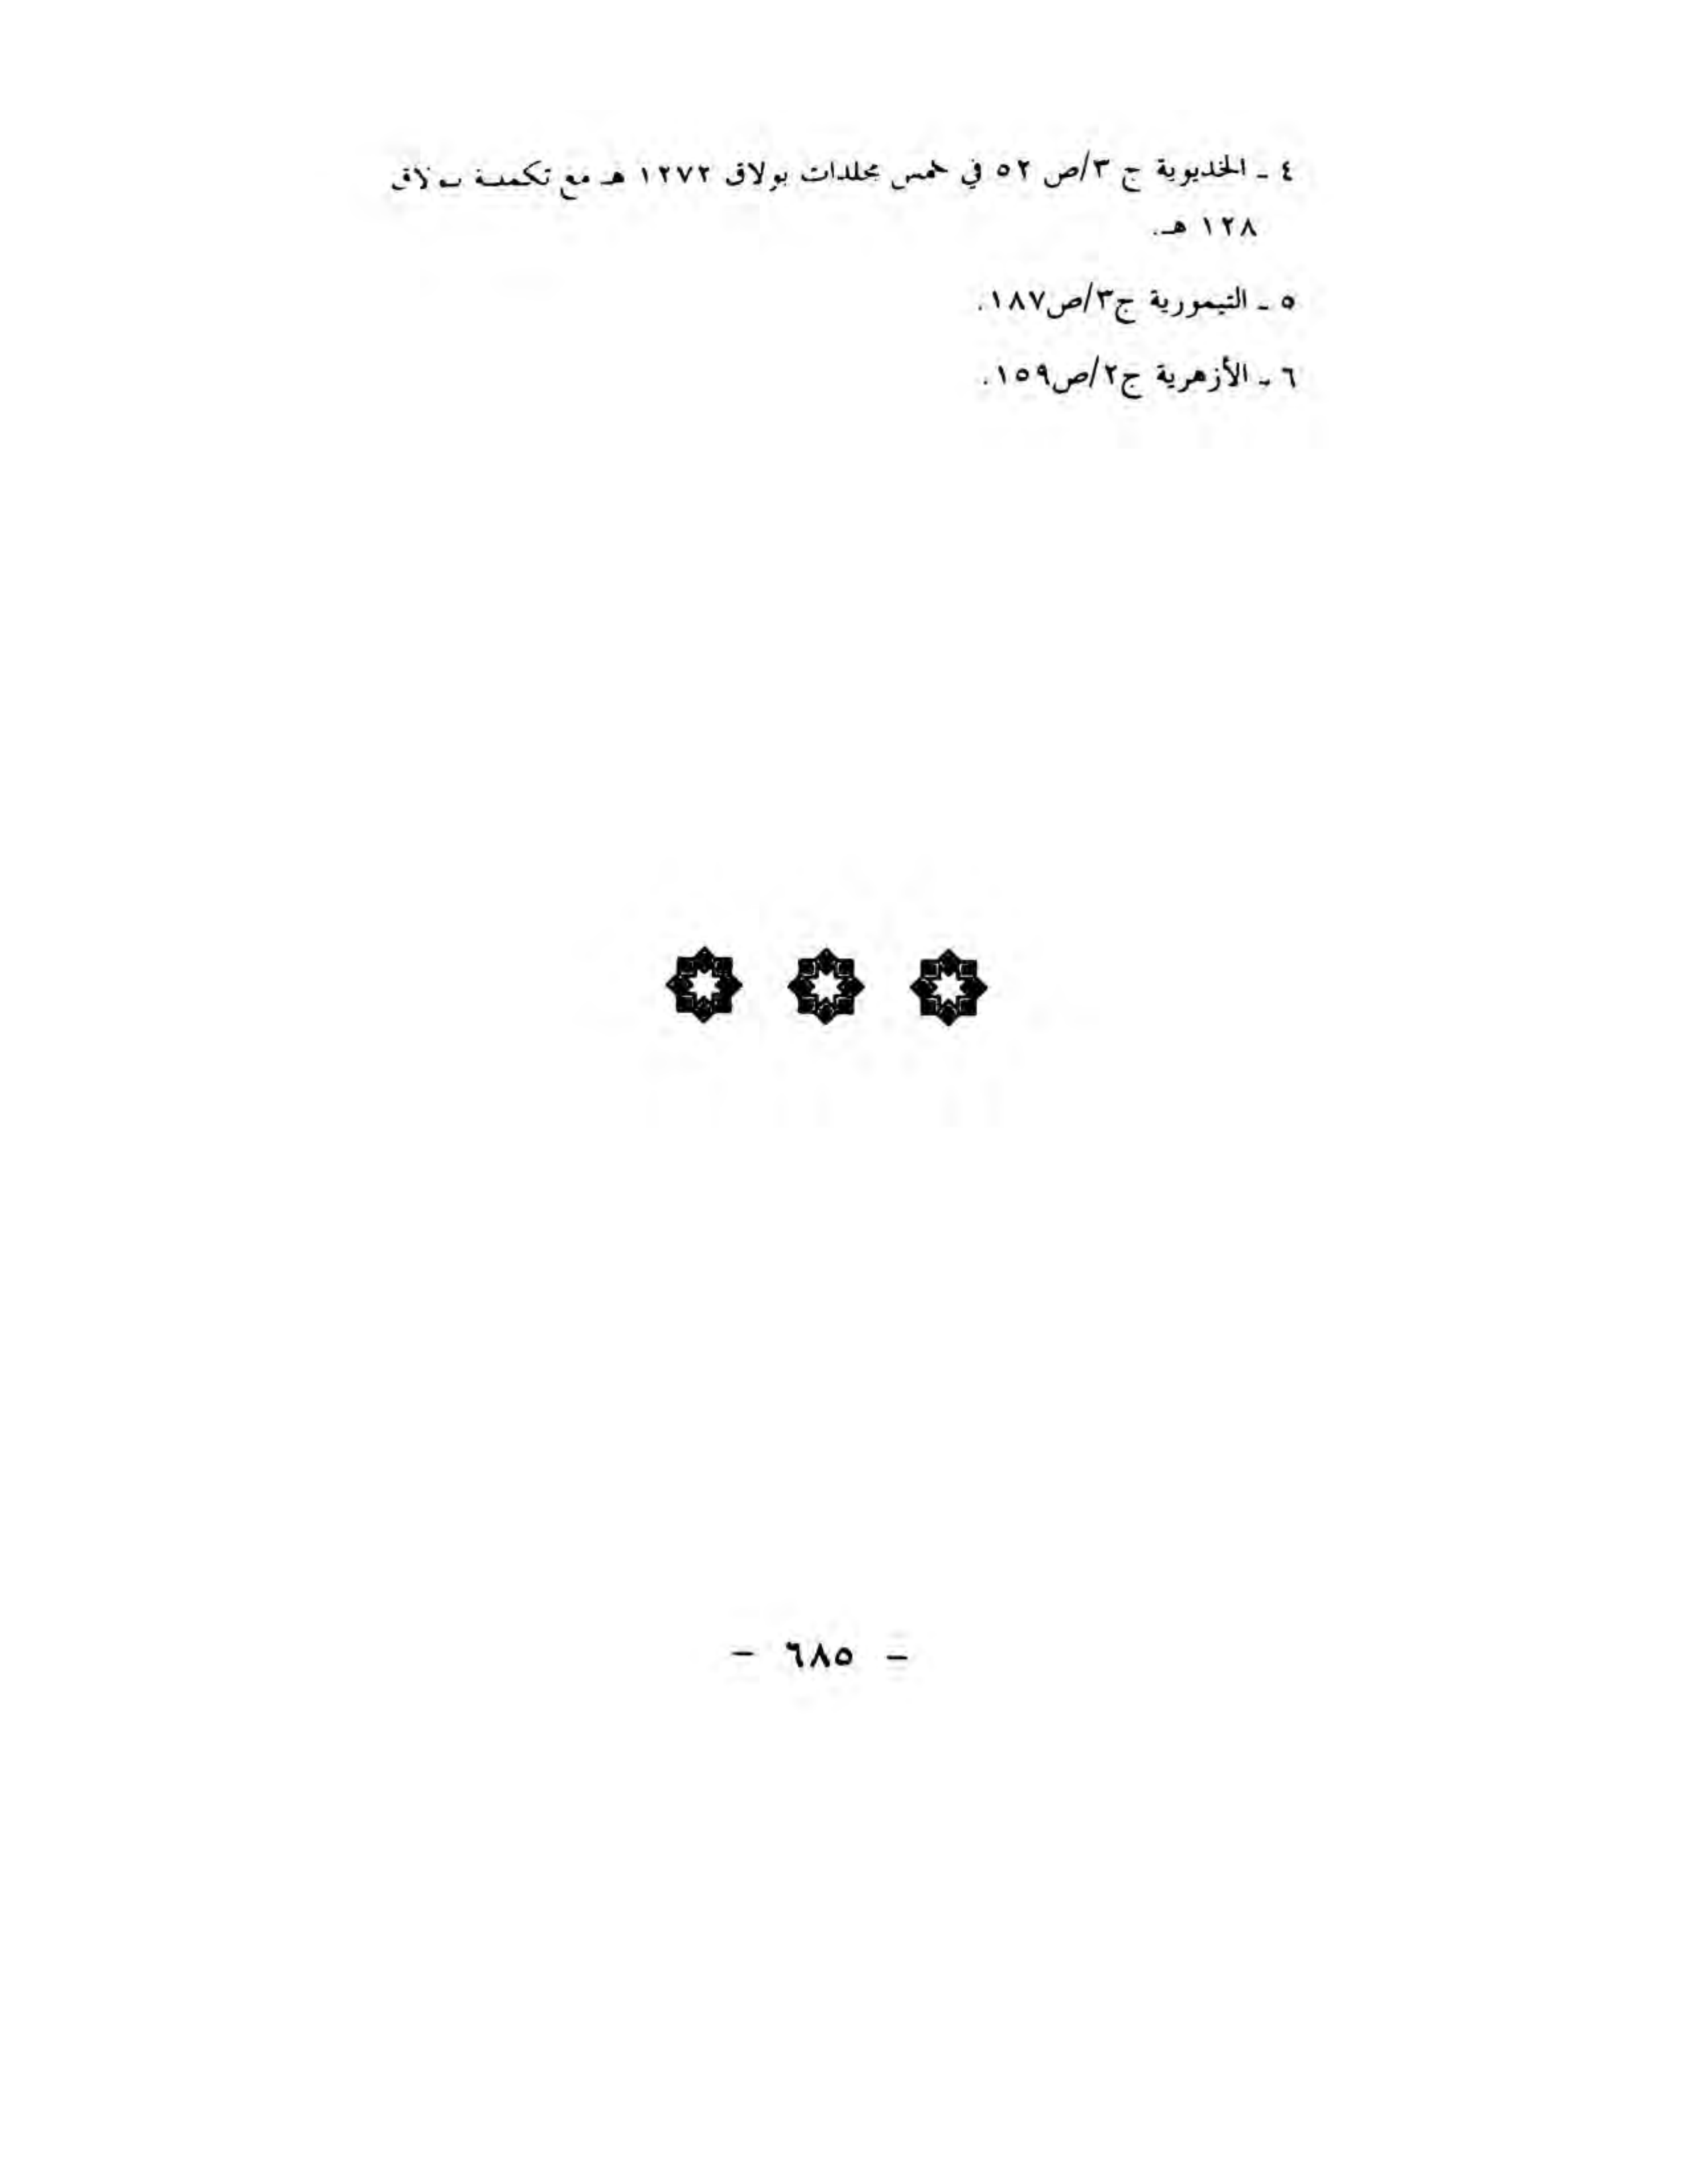 ٤ ـ الخديوية ج ٣/ص ٥٢ في خمس مجلدات بولاق ١٢٧٢ هـ مع تكملة بولاق
١٢٨ هـ.
٥ ـ التيمورية ج٣/ص١٨٧.
٦ ـ الأزهرية ج٢/ص١٥٩.
- ٦٨٥ -